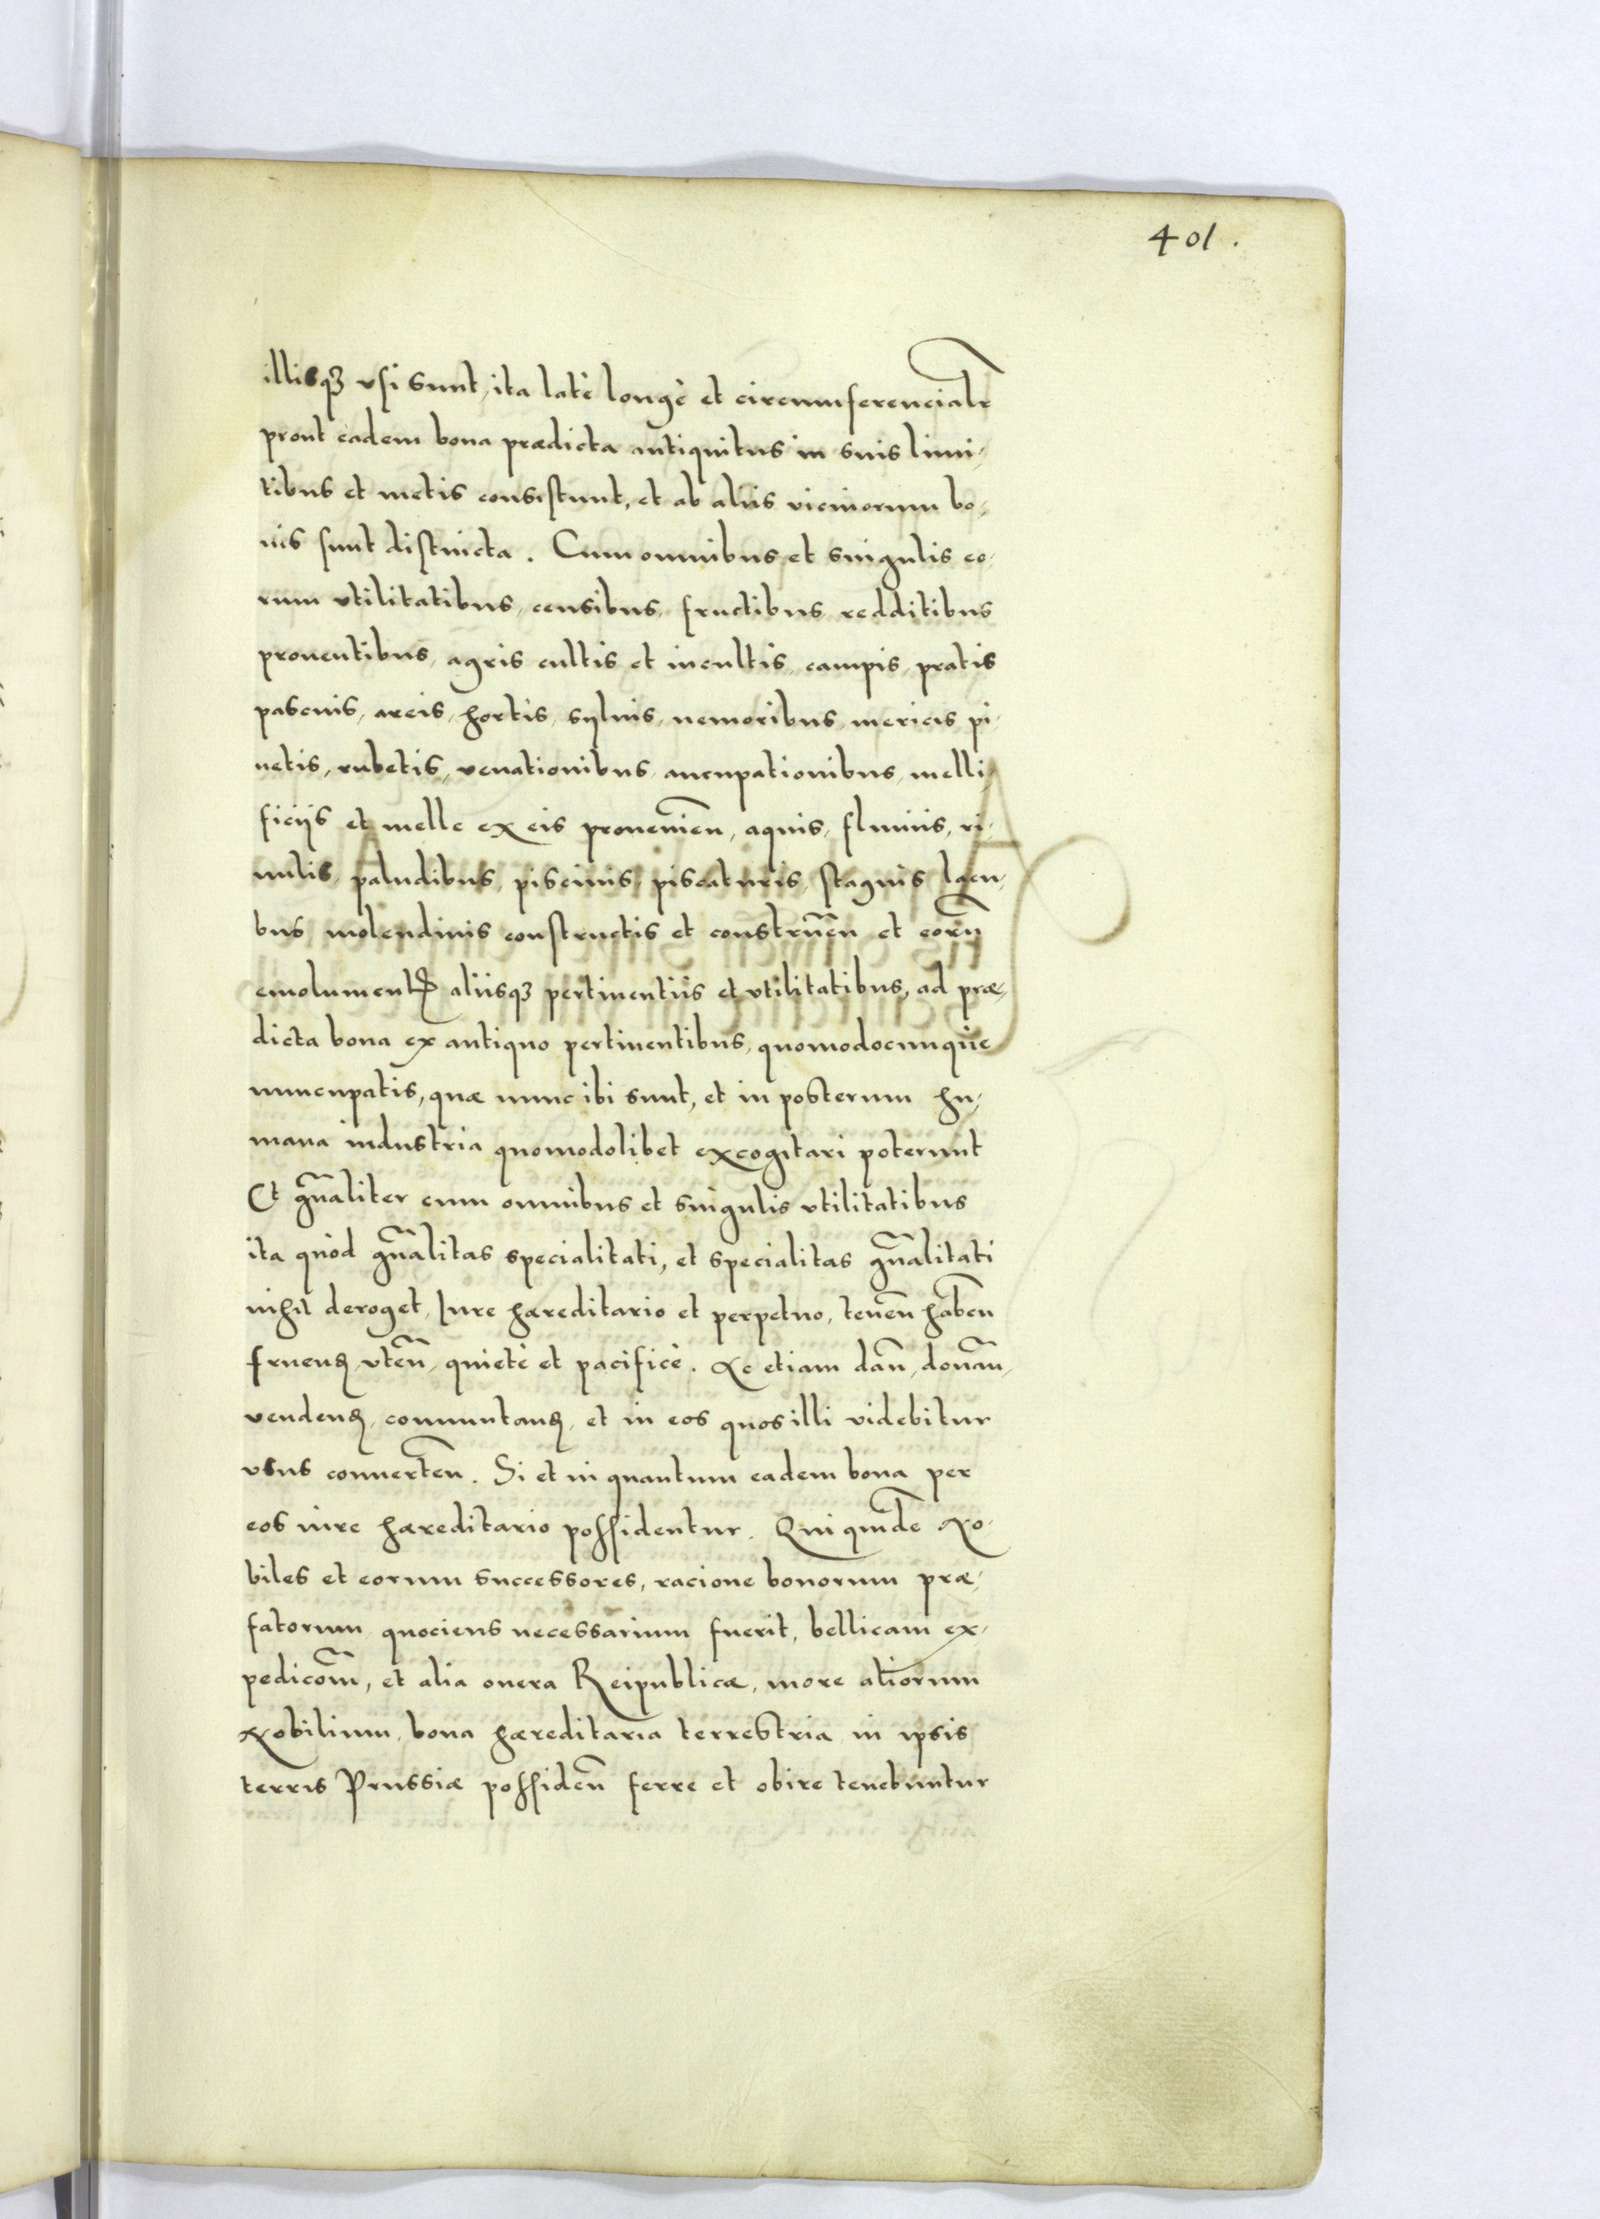 401.
illisq3 vsi sunt, ita latè longè et circumferencialr
prout eadem bona prædicta antiquitus in suis limi,
tibus et metis consistunt, et ab aliis vicinorum bo,
nis sunt distincta. Cum omnibus et singulis eo,
rum vtilitatibus, censibus, fructibus, redditibus
prouentibus, agris cultis et incultis, campis, pratis
pascuis, areis, hortis, syluis, nemoribus, mericis pi,
netis, rubetis, venationibus, aucupationibus, melli,
ficiis et melle ex eis prouenien̄, aquis, fluuiis, ri,
uulis, paludibus, piscinis, piscaturis, stagnis, lacu,
bus, molendinis constructis et construēn et eorū
emolument aliisq3 pertinentiis et vtilitatibus, ad præ,
dicta bona ex antiquo pertinentibus, quomodocunque
nuncupatis, quæ nunc ibi sunt, et in posterum hu,
mana industria quomodolibet excogitari poterunt
Et gn̄aliter cum omnibus et singulis vtilitatibus
ita quod gn̄alitas specialitati, et specialitas gn̄alitati
nihil deroget, Iure hæreditario et perpetuo, tenēn habēn
fruend, vtēn, quietè et pacificè. Ac etiam dān, donān,
vendend, commutand, et in eos quos illi videbitur
vsus conuertēn. Si et in quantum eadem bona per
eos iure hæreditario possidentur. Qui quidē No,
biles et eorum successores, racione bonorum præ,
fatorum, quociens necessarium fuerit, bellicam ex,
pedicōm, et alia onera Reipublicæ, more aliorum
Nobilium, bona hæreditaria terrestria in ipsis
terris Prussiæ possidēn ferre et obire tenebuntur